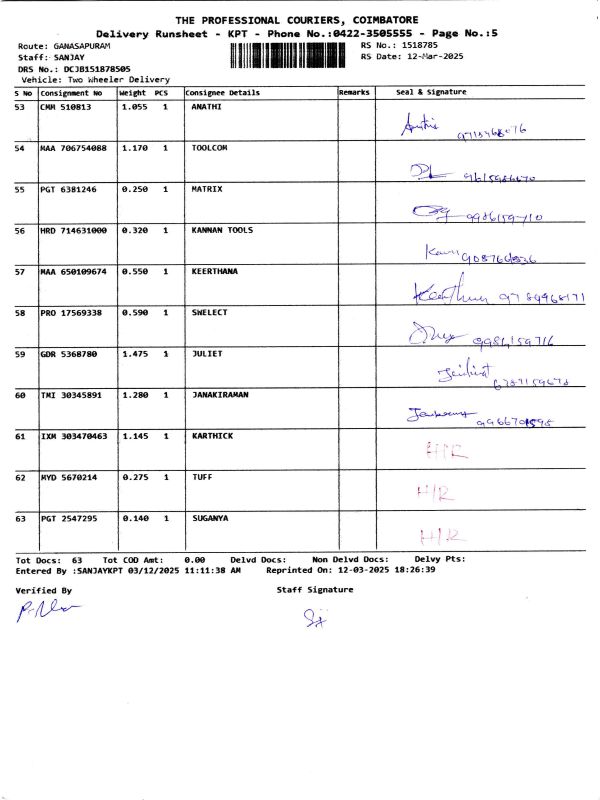 THE PROFESSIONAL COURIERS, COIMBATORE
Delivery Runsheet - KPT - Phone No.:0422-3505555 - Page No.:5
Route: GANASAPURAM
RS No.: 1518785
Staff: SANJAY
RS Date: 12-Mar-2025
DRS No.: DCJB151878505
Vehicle: Two Wheeler Delivery
S No Consignment No Weight PCS Consignee Details Remarks Seal & Signature
53 CMM 510813 1.055 1 ANATHI
54 MAA 706754088 1.170 1 TOOLCOM
55 PGT 6381246 0.250 1 MATRIX
56 HRD 714631000 0.320 1 KANNAN TOOLS
57 MAA 650109674 0.550 1 KEERTHANA
Keerthana
58 PRO 17569338 0.590 1 SWELECT
59 GDR 5368780 1.475 1 JULIET
60 TMI 30345891 1.280 1 JANAKIRAMAN
61 IXM 303470463 1.145 1 KARTHICK
H/R
62 MYD 5670214 0.275 1 TUFF
H/R
63 PGT 2547295 0.140 1 SUGANYA
H/R
Tot Docs: 63 Tot COD Amt: 0.00 Delvd Docs: Non Delvd Docs: Delvy Pts:
Entered By :SANJAYKPT 03/12/2025 11:11:38 AM Reprinted On: 12-03-2025 18:26:39
Verified By Staff Signature